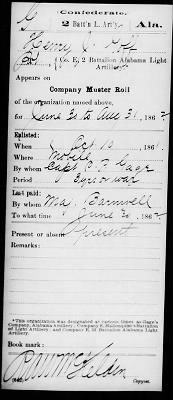 Confederate.
2 Batt'n L. Art'y. Ala.
Henry J. Goff
Co. E, 2 Battalion Alabama Light
Artillery.*
Appears on
Company Muster Roll
of the organization named above,
for June 30 to Aug 31, 1862
Enlisted:
When Oct 10, 1861
Where Mobile
By whom Capt. C. P. Gage
Period 3 yrs or war
Last paid:
By whom Maj. Barnwell
To what time June 30, 1862
Present or absent Present
Remarks:
*This organization was designated at various times as Gage's
Company, Alabama Artillery; Company E, Hallonquist's Battalion
of Light Artillery; and Company E, 2d Battalion Alabama Light
Artillery.
Book mark:
Copyist.